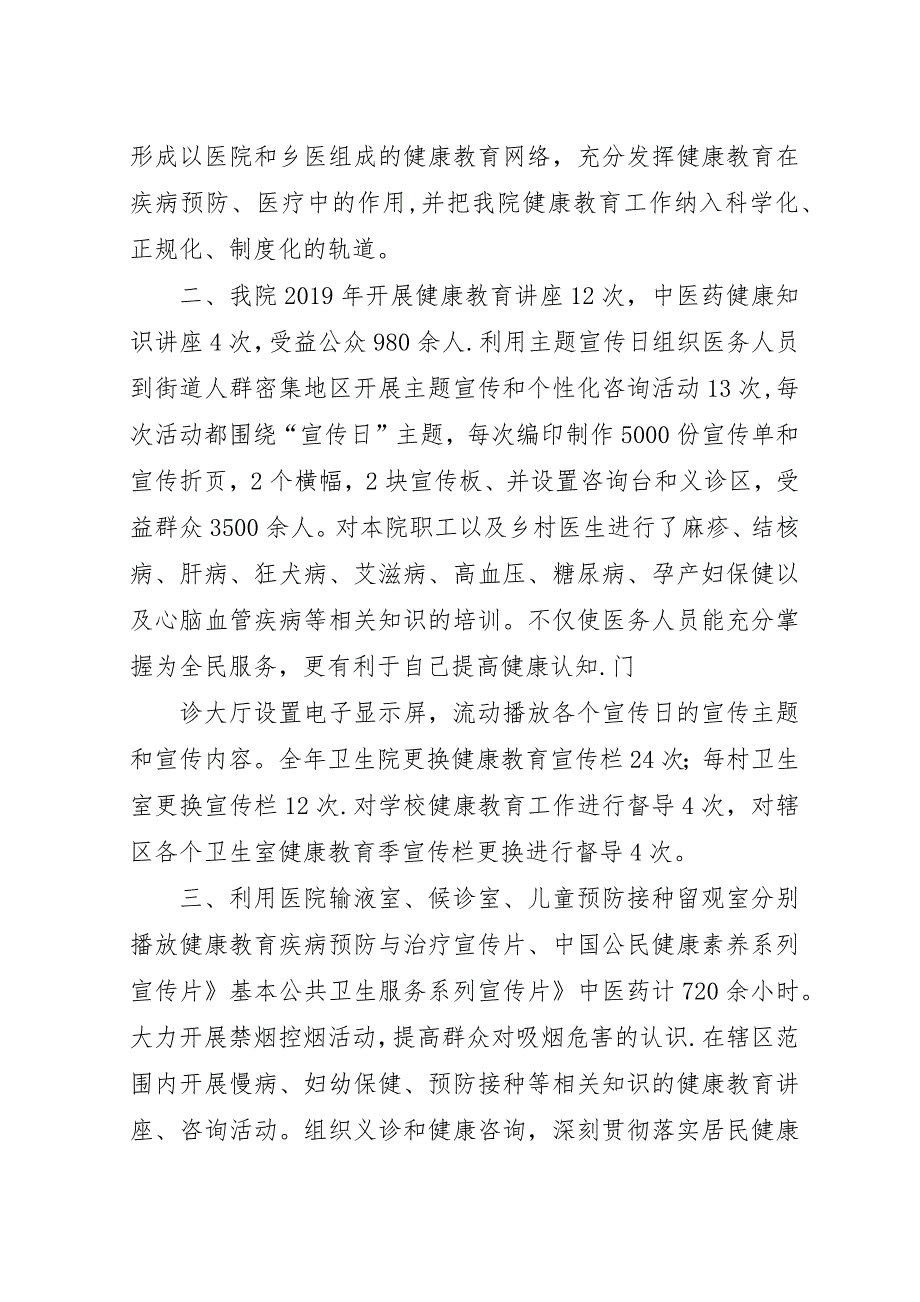 形成以医院和乡医组成的健康教育网络，充分发挥健康教育在
疾病预防、医疗中的作用,并把我院健康教育工作纳入科学化、
正规化、制度化的轨道。
二、我院 2019 年开展健康教育讲座 12 次，中医药健康知
识讲座 4 次，受益公众 980 余人.利用主题宣传日组织医务人员
到街道人群密集地区开展主题宣传和个性化咨询活动 13 次,每
次活动都围绕“宣传日”主题，每次编印制作 5000 份宣传单和
宣传折页，2 个横幅，2 块宣传板、并设置咨询台和义诊区，受
益群众 3500 余人。对本院职工以及乡村医生进行了麻疹、结核
病、肝病、狂犬病、艾滋病、高血压、糖尿病、孕产妇保健以
及心脑血管疾病等相关知识的培训。不仅使医务人员能充分掌
握为全民服务，更有利于自己提高健康认知.门
诊大厅设置电子显示屏，流动播放各个宣传日的宣传主题
和宣传内容。全年卫生院更换健康教育宣传栏 24 次；每村卫生
室更换宣传栏 12 次.对学校健康教育工作进行督导 4 次，对辖
区各个卫生室健康教育季宣传栏更换进行督导 4 次。
三、利用医院输液室、候诊室、儿童预防接种留观室分别
播放健康教育疾病预防与治疗宣传片、中国公民健康素养系列
宣传片》基本公共卫生服务系列宣传片》中医药计 720 余小时。
大力开展禁烟控烟活动，提高群众对吸烟危害的认识.在辖区范
围内开展慢病、妇幼保健、预防接种等相关知识的健康教育讲
座、咨询活动。组织义诊和健康咨询，深刻贯彻落实居民健康